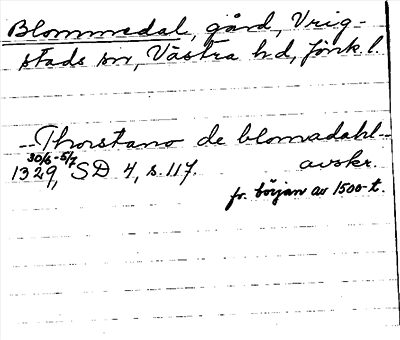 Blommedal, gård, Vrig-
stads sn, Västra hd, Jönk. l.
--Thorstano de blomadahl--
30/6-5/7
1329, SD 4, s. 117. avskr.
fr. början av 1500-t.